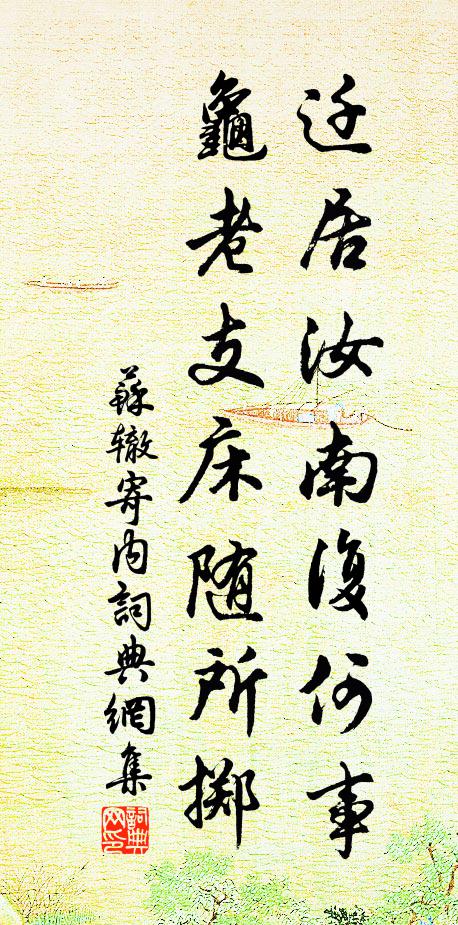 迁居汝南復何事
龜老支床随所掷
蘇辙寄内詞典網集
詞典网印